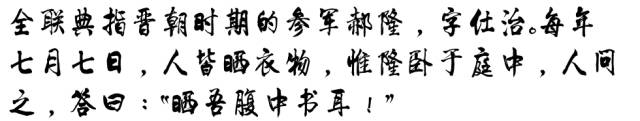 全联典指晋朝时期的参军郝隆，字仕治。每年
七月七日，人皆晒衣物，惟隆卧于庭中，人问
之，答曰：“晒吾腹中书耳！”